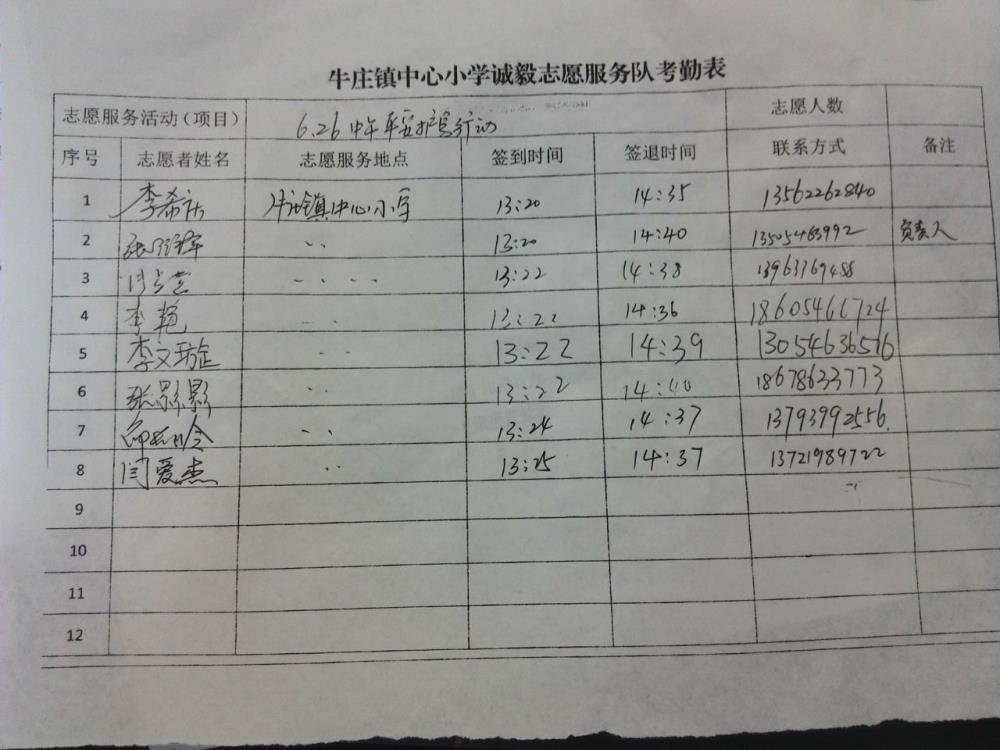 牛庄镇中心小学诚毅志愿服务队考勤表
志愿服务活动（项目） 6.26 中午平安护学行动 志愿人数
序号 志愿者姓名 志愿服务地点 签到时间 签退时间 联系方式 备注
1 李希 牛庄镇中心小学 13:20 14:35 13562262840
2 13:20 14:40 13505463992 负责人
3 13:22 14:38 13963769488
4 李艳 13:22 14:36 18605466724
5 李文璇 13:22 14:39
6 张影影 13:22 14:40 18678633773
7 13:24 14:37 13793992556.
8 闫爱杰 13:25 14:37 13721989722
9
10
11
12